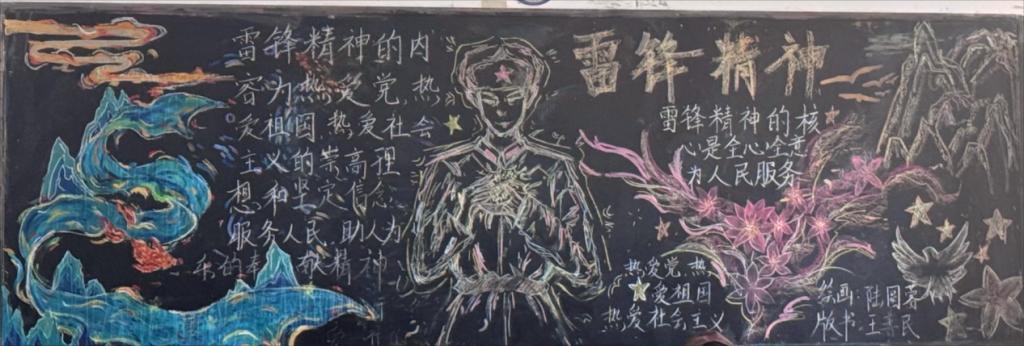 雷锋精神的内
容为热爱党热
爱祖国热爱社会
主义的崇高理
想和坚定信念
服务人民助人为
乐的奉献精神
雷锋精神
雷锋精神的核
心是全心全意
为人民服务
热爱党热
爱祖国
热爱社会主义
绘画:陆
版书:王 民